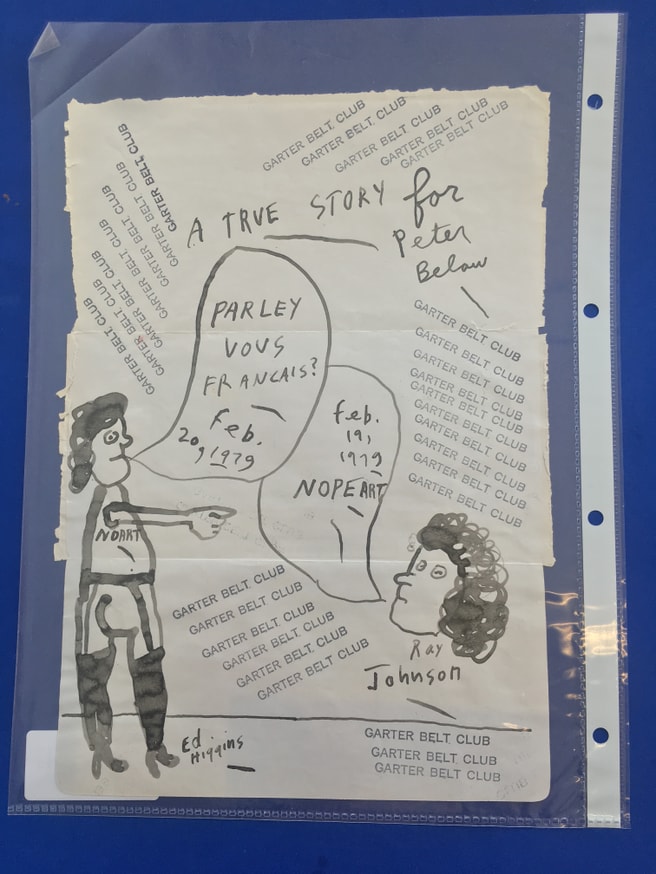 GARTER BELT CLUB
GARTER BELT CLUB
GARTER BELT CLUB
GARTER BELT CLUB
GARTER BELT CLUB
GARTER BELT CLUB
GARTER BELT CLUB
GARTER BELT CLUB
GARTER BELT CLUB
GARTER BELT CLUB
GARTER BELT CLUB
A TRUE STORY for
Peter
Below
PARLEY
VOUS
FRANCAIS?
Feb.
20, 1979
feb.
19,
1979
NOPEART
GARTER BELT CLUB
GARTER BELT CLUB
GARTER BELT CLUB
GARTER BELT CLUB
GARTER BELT CLUB
GARTER BELT CLUB
GARTER BELT CLUB
GARTER BELT CLUB
GARTER BELT CLUB
NOART
GARTER BELT CLUB
GARTER BELT CLUB
GARTER BELT CLUB
GARTER BELT CLUB
GARTER BELT CLUB
GARTER BELT CLUB
Ray
Johnson
Ed
Higgins
GARTER BELT CLUB
GARTER BELT CLUB
GARTER BELT CLUB